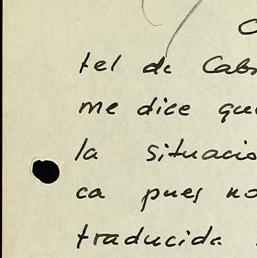 tel de Cabr
me dice que
la situació
ca pues no
traducida